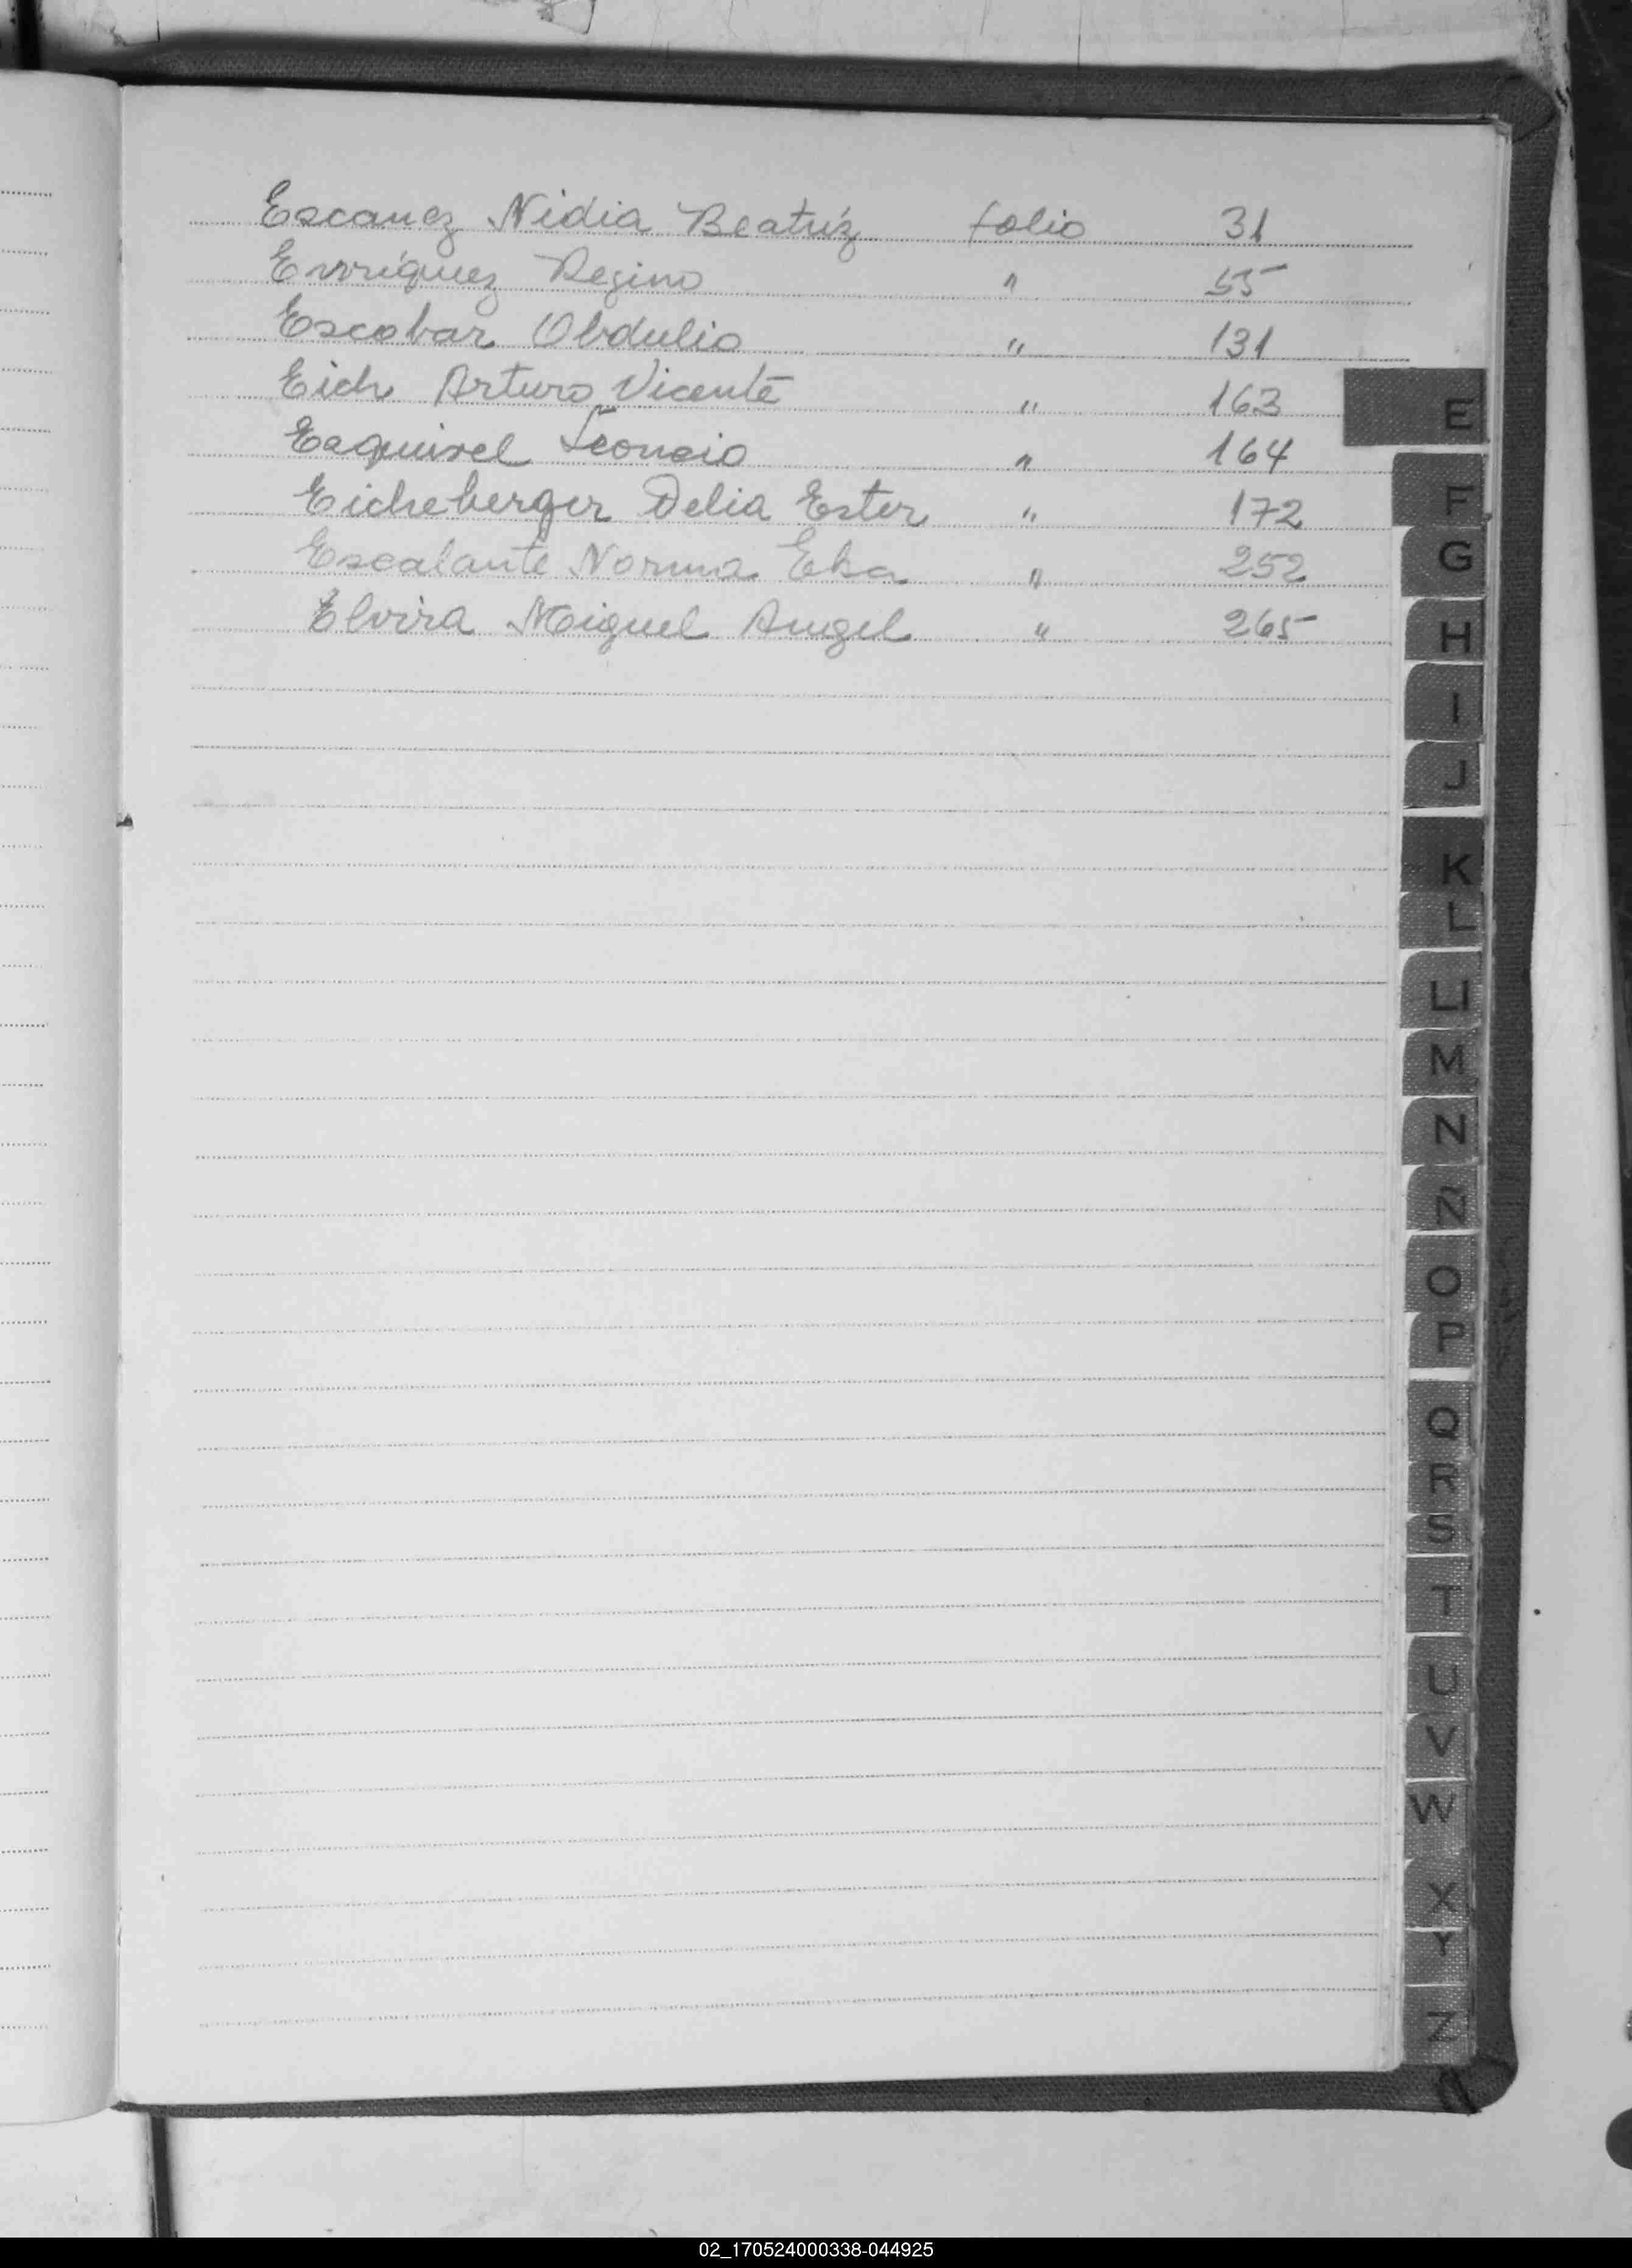 Escanez Nidia Beatríz folio 31
Enrríquez Regino " 55
Escobar Obdulio " 131
Eich Arturo Vicente " 163
Esquivel Leoncio " 164
Eicheberger Delia Ester " 172
Escalante Norma Elsa " 252
Elvira Miguel Angel " 265
E
F
G
H
I
J
K
L
LL
M
N
Ñ
O
P
Q
R
S
T
U
V
W
X
Y
Z
02_170524000338-044925